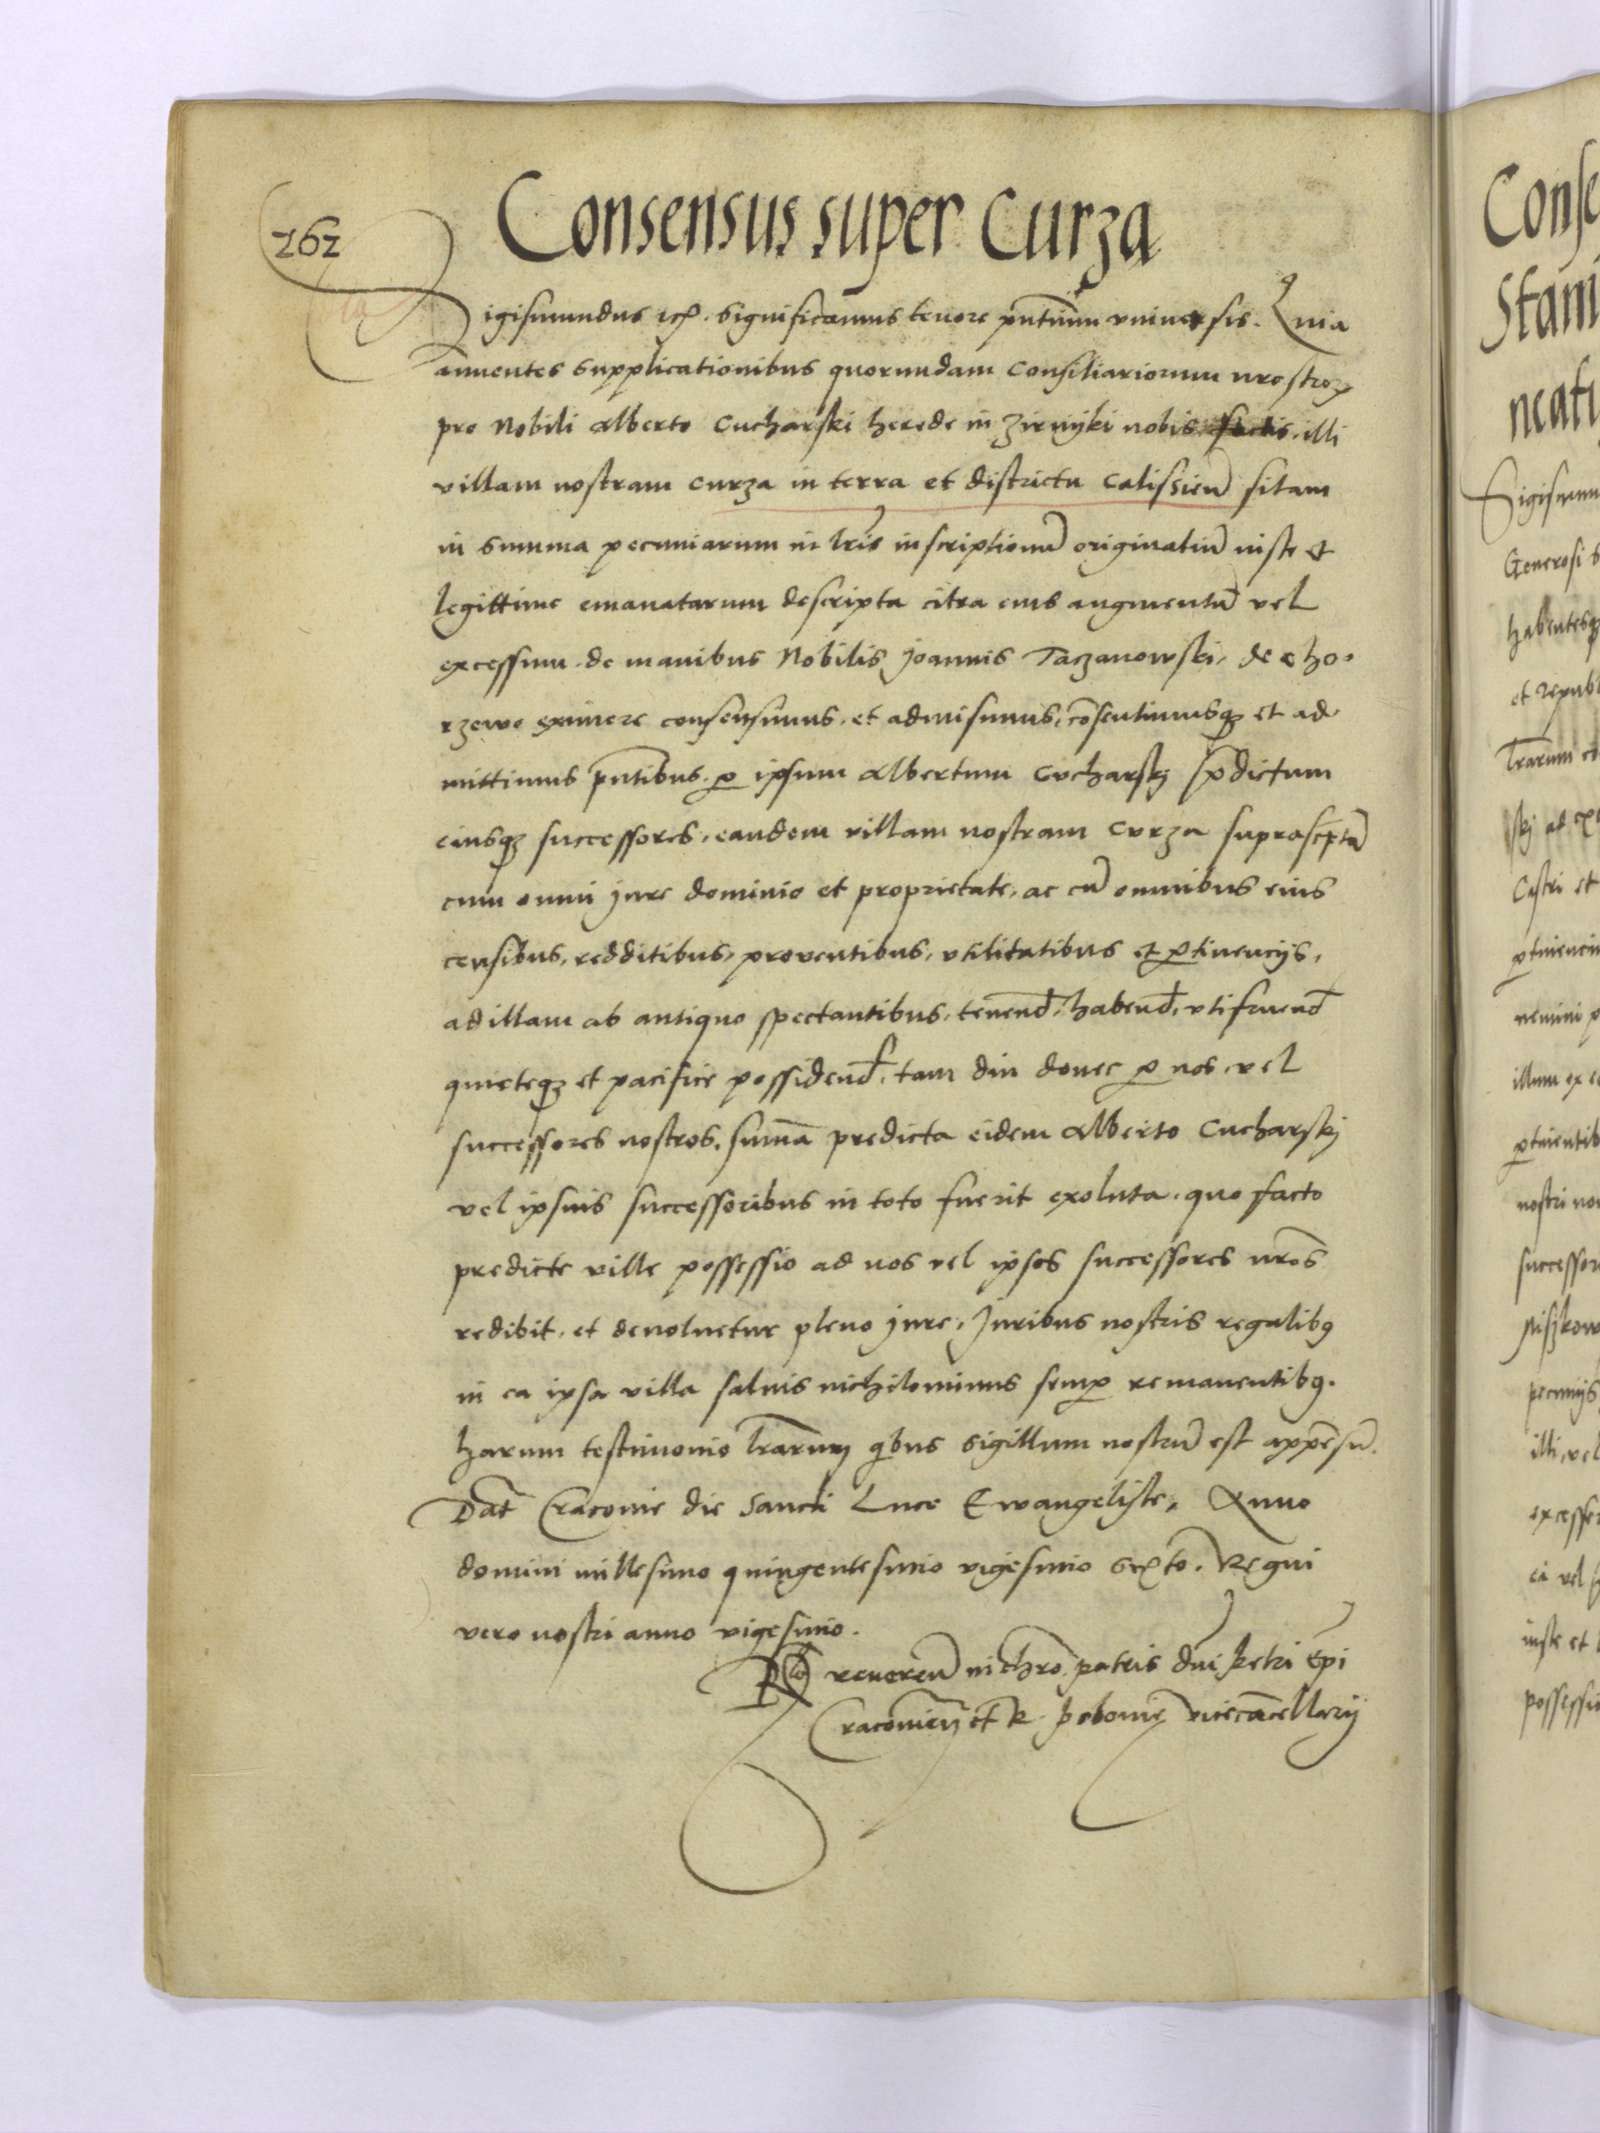 262
Consensus super Curza
Sigismundus etc. Significamus tenore pntium vniuersis. Quia
annuentes supplicationibus quorundam Consiliariorum nrostroꝝ
pro Nobili Alberto Cucharski herede in Zirnyki nobis factis. illi
villam nostram Curza in terra et districtu Calissien̄ sitam
in summa pecuniarum in lris inscriptionū originaliū iuste et
legittime emanatarum descripta citra eius augmentū vel
excessum. de manibus Nobilis Joannis Taczanowski. de Cho-
rzewo eximere consensimus. et admisimus, cōsentimusqꝫ et ad
mittimus pn̄tibus. ꝑ ipsum Albertum Cucharskj p̄dictum
eiusqꝫ successores, eandem villam nostram Curza suprascptā
cum omni Jure dominio et proprietate, ac cū omnibus eius
censibus, redditibus, proventibus, vtilitatibus et ꝑtinencijs,
ad illam ab antiquo spectantibus, tenend̄. habend̄, vtifruend̄
quieteqꝫ et pacifice possidend̄. tam diu donec ꝑ nos, vel
successores nostros, sum̄a predicta eidem Alberto Cucharskj
vel ipsius successoribus in toto fuerit exoluta. quo facto
predicte ville possessio ad nos vel ipsos successores nr̄os
redibit, et deuoluetur pleno Jure, Juribus nostris regalibꝰ
in ea ipsa villa saluis nichilominus semꝑ remanentibꝰ.
harum testimonio lrarum qibus Sigillum nostrū est appēsū.
Dat̄ Cracouie die Sancti Luce Ewangeliste, Anno
domini millesimo quingentesimo vigesimo Sexto. Regni
vero nostri anno vigesimo.
Rō reueren̄ in chrō patris dn̄i Petri Ep̄i
Cracouien̄ et R. Polonie vicecācellarij
Conse
Stani
ncatu
Sigismun
Generosi
habentesqꝫ
et
lrarum co
Castri et
ꝑtinencii
nemini
illum ex
ꝑtinentib
nostri non
successor
pecunijs
illi, vel
excesse
ei vel
iuste et
possessio